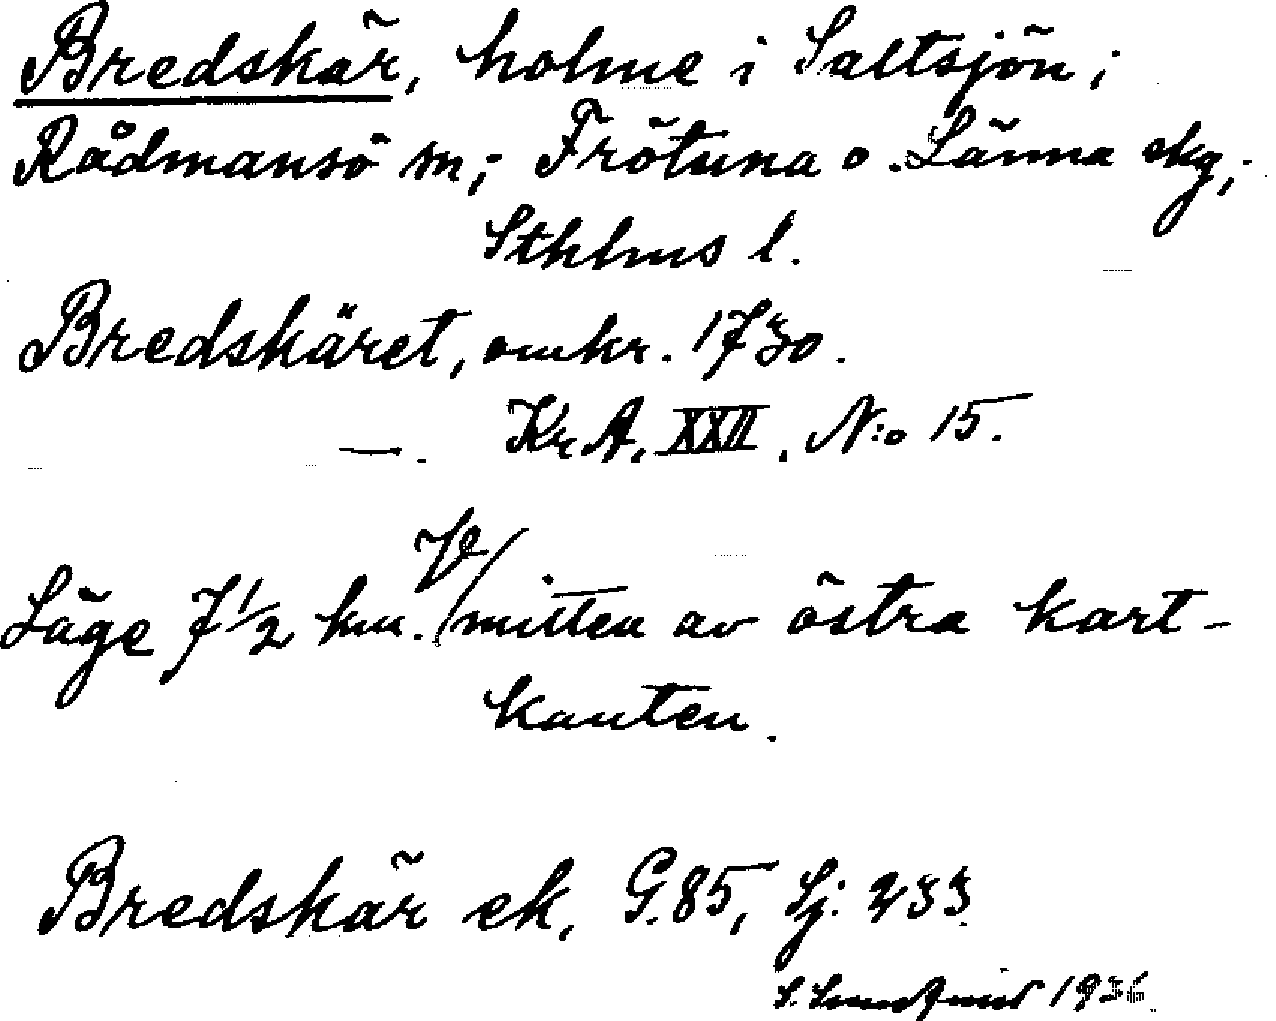 Bredskär, holme i Saltsjön i
Rådmansö sn; Frötuna o. Länna skg,
Sthlms l.
Bredskäret, omkr. 1730.
—. Kr A. XXII. N:o 15.
Läge 7 1/2 km. V/mitten av östra kart-
kanten.
Bredskär ek, G. 85, Sj: 233.
S. 1936.